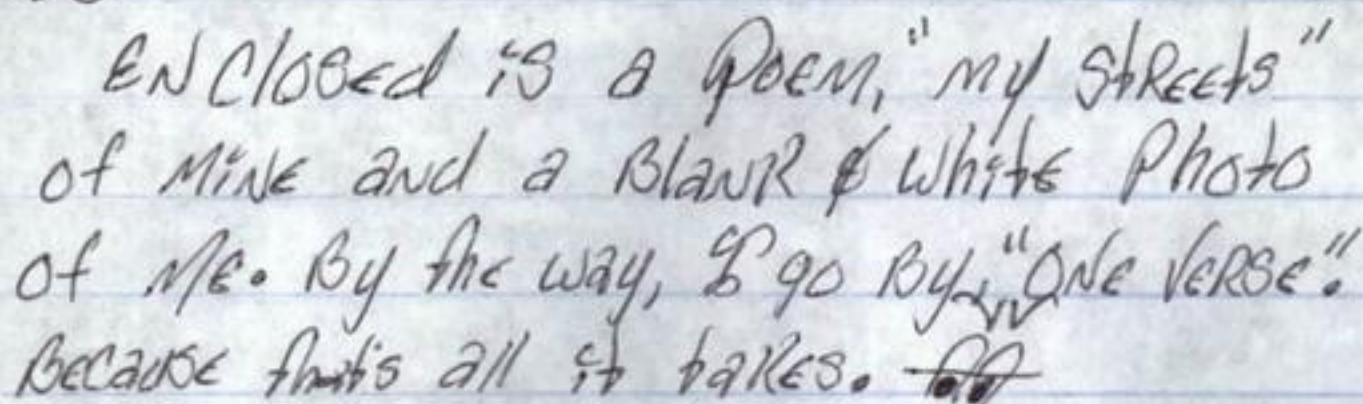 Enclosed is a Poem, "my streets"
of mine and a Blank & White Photo
of me. By the way, I go By, "One Verse".
Because that's all it takes.